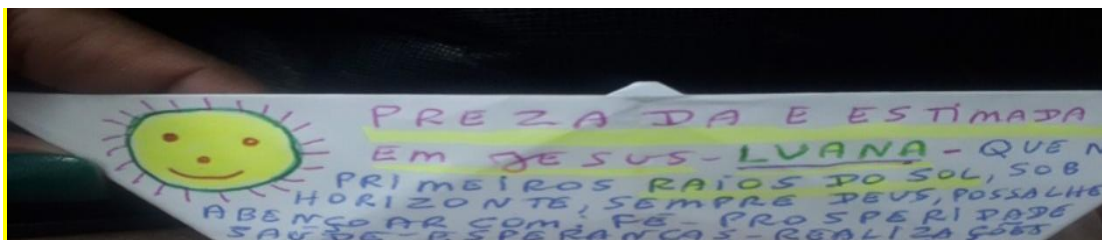 PREZADA E ESTIMADA
EM JESUS - LUANA - QUE
PRIMEIROS RAIOS DO SOL, SOB
HORIZONTE, SEMPRE DEUS, POSSA LHE
ABENÇOAR COM; FE - PROSPERIDADE
SAÚDE - ESPERANÇAS - REALIZAÇÕES